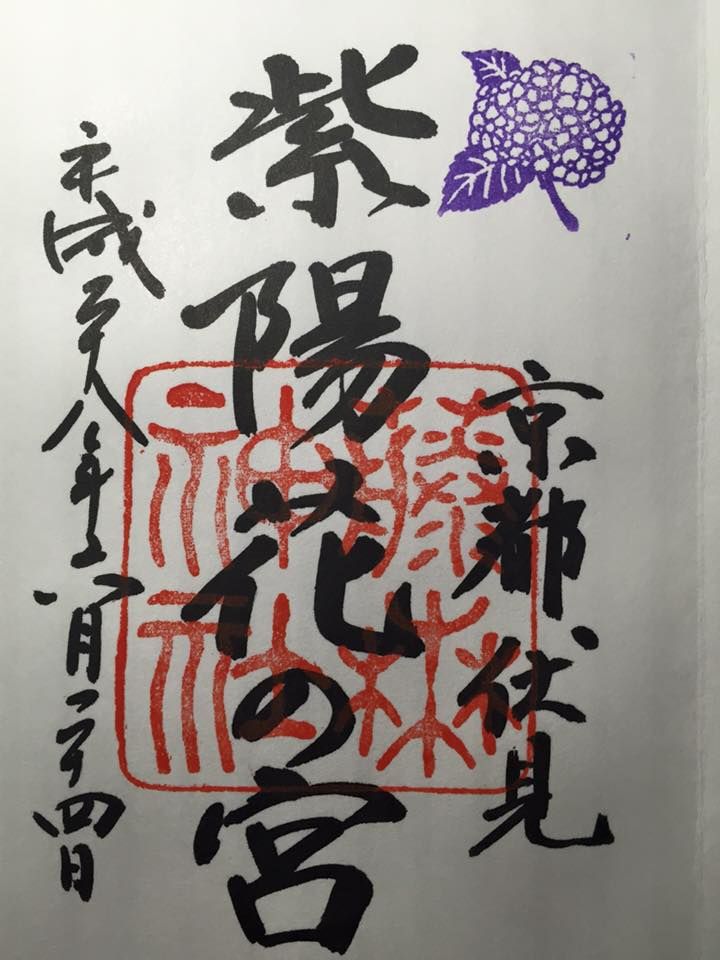 京都伏見
紫陽花の宮
平成二十八年六月二十四日
藤森
神社